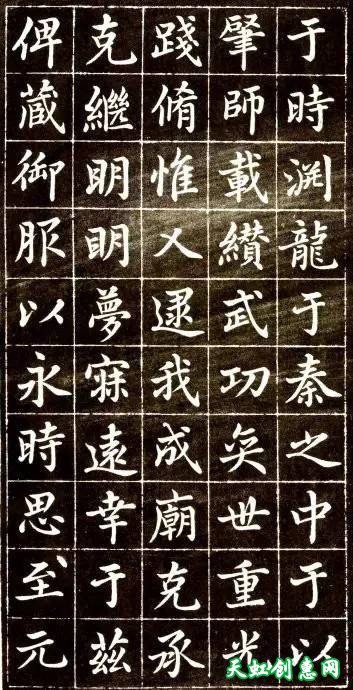 于時渕龍于秦之中于以
肇師載纘武功奕世重光
踐脩惟乂逮我成廟克承
克繼明明夢寐遠幸于茲
俾蔵御服以永時思至元
天虹创惠网